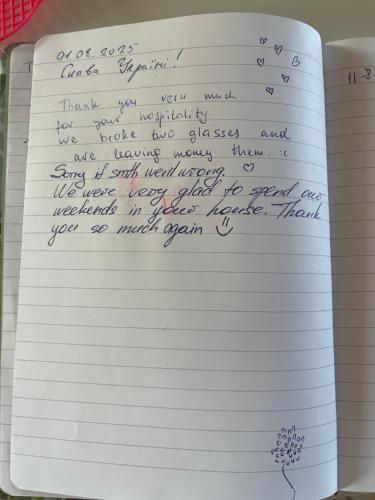 01.08.2025
Слава Україні!
Thank you very much
for your hospitality
we broke two glasses and
are leaving money them. :c
Sorry if smth went wrong.
We were very glad to spend our
weekends in your house. Thank
you so much again